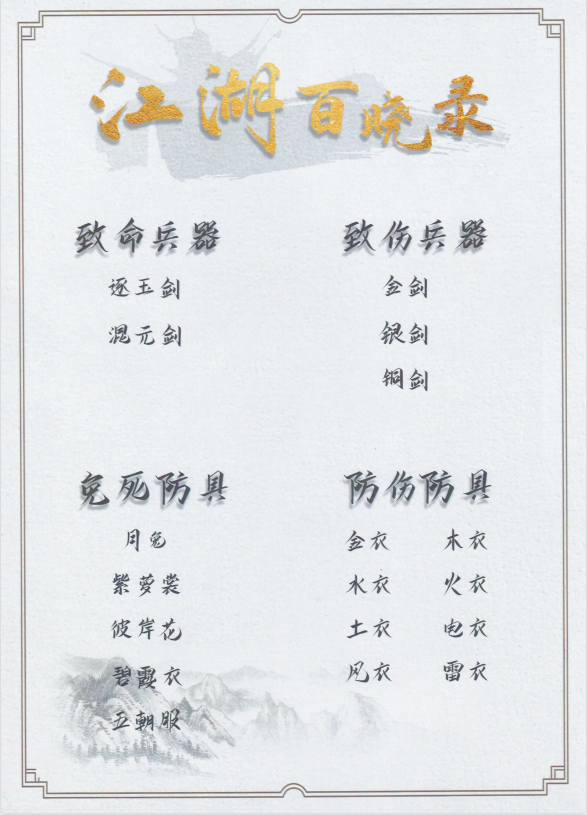 江湖百晓录
致命兵器
逐玉剑
混元剑
致伤兵器
金剑
银剑
铜剑
免死防具
月兔
紫萝裳
彼岸花
碧霞衣
五朝服
防伤防具
金衣 木衣
水衣 火衣
土衣 电衣
风衣 雷衣